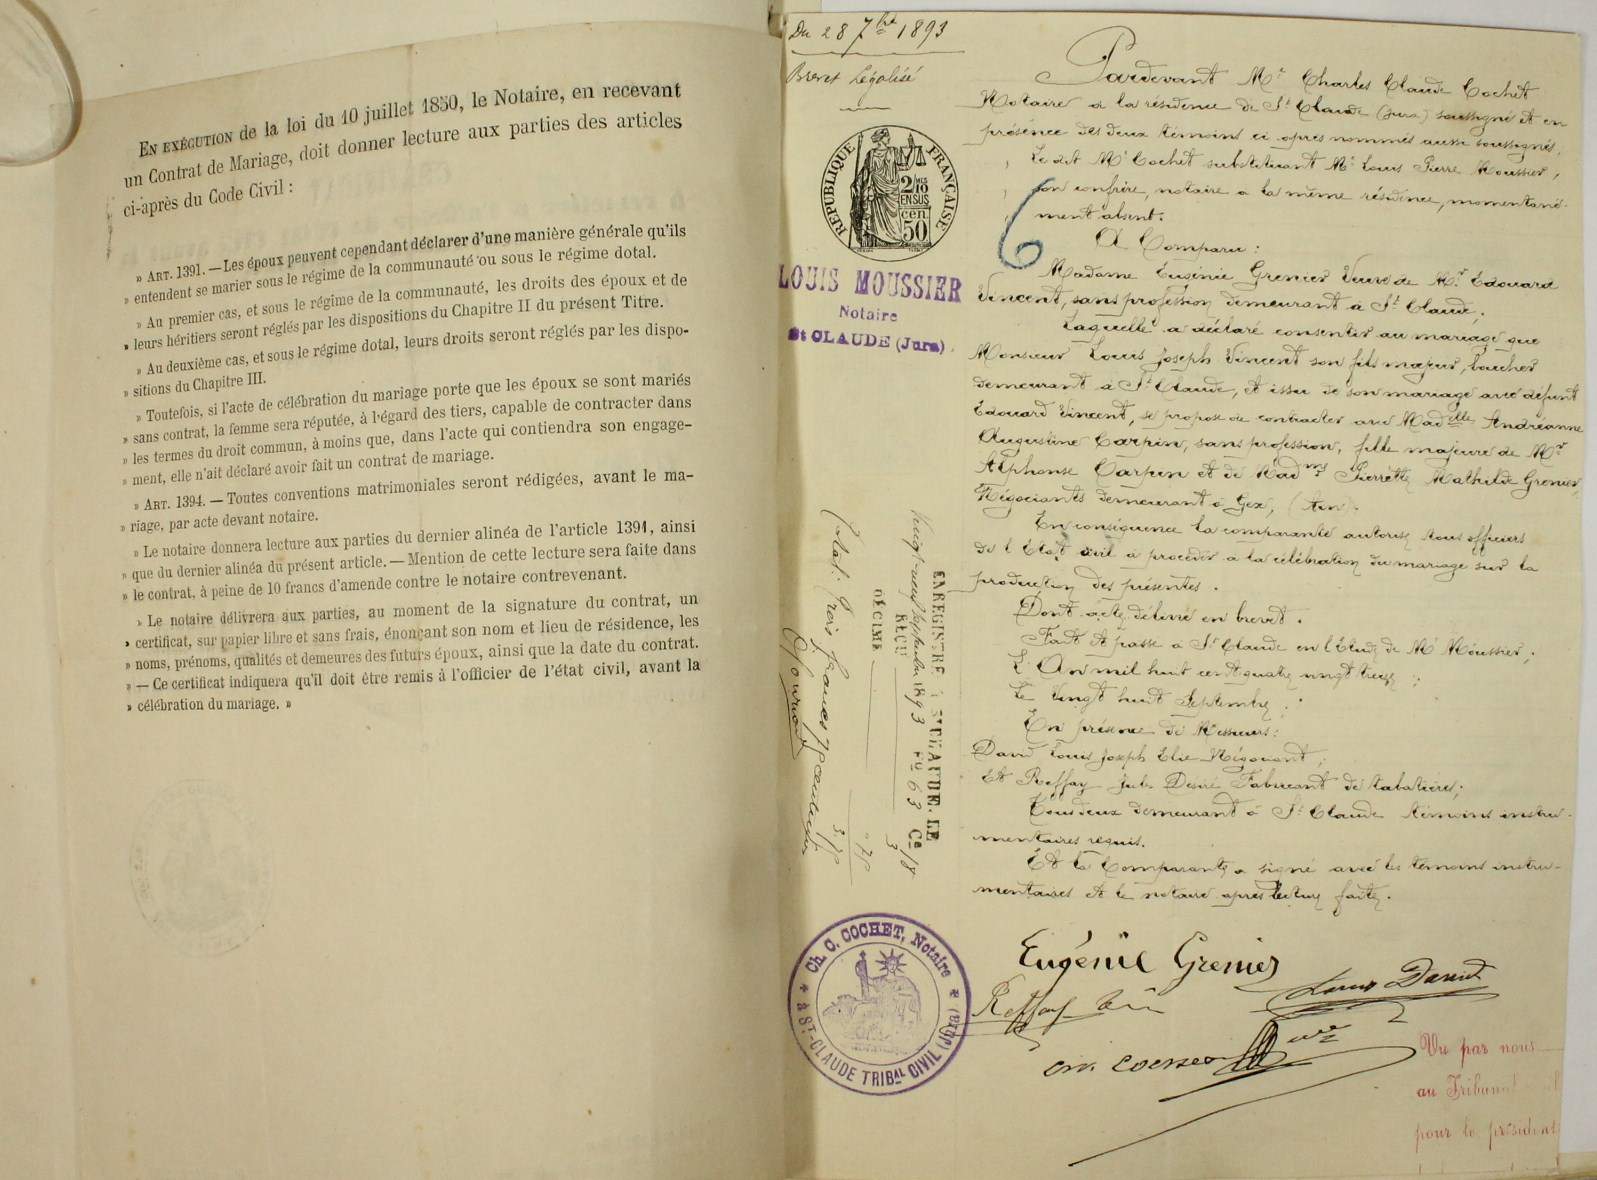 EN EXÉCUTION de la loi du 10 juillet 1850, le Notaire, en recevant
un Contrat de Mariage, doit donner lecture aux parties des articles
ci-après du Code Civil :
» ART. 1391. — Les époux peuvent cependant déclarer d'une manière générale qu'ils
» entendent se marier sous le régime de la communauté ou sous le régime dotal.
» Au premier cas, et sous le régime de la communauté, les droits des époux et de
» leurs héritiers seront réglés par les dispositions du Chapitre II du présent Titre.
» Au deuxième cas, et sous le régime dotal, leurs droits seront réglés par les dispo-
» sitions du Chapitre III.
» Toutefois, si l'acte de célébration du mariage porte que les époux se sont mariés
» sans contrat, la femme sera réputée, à l'égard des tiers, capable de contracter dans
» les termes du droit commun, à moins que, dans l'acte qui contiendra son engage-
» ment, elle n'ait déclaré avoir fait un contrat de mariage.
» ART. 1394. — Toutes conventions matrimoniales seront rédigées, avant le ma-
» riage, par acte devant notaire.
» Le notaire donnera lecture aux parties du dernier alinéa de l'article 1391, ainsi
» que du dernier alinéa du présent article. — Mention de cette lecture sera faite dans
» le contrat, à peine de 10 francs d'amende contre le notaire contrevenant.
» Le notaire délivrera aux parties, au moment de la signature du contrat, un
» certificat, sur papier libre et sans frais, énonçant son nom et lieu de résidence, les
» noms, prénoms, qualités et demeures des futurs époux, ainsi que la date du contrat.
» — Ce certificat indiquera qu'il doit être remis à l'officier de l'état civil, avant la
» célébration du mariage. »
Du 28 7bre 1893
Brevet Légalisé
RÉPUBLIQUE FRANÇAISE
2/10 EN SUS
50 cen.
LOUIS MOUSSIER
Notaire
St CLAUDE (Jura)
6
Pardevant Me Charles Claude Cochet
Notaire à la résidence de St Claude (Jura) soussigné et en
présence des deux témoins ci après nommés aussi soussignés,
Le dit Me Cochet substituant Me Louis Pierre Moussier,
son confrère, notaire a la même résidence, momentané-
ment absent.
A Comparu :
Madame Eugénie Grenier Veuve de Mr Edouard
Vincent, sans profession, demeurant à St Claude,
Laquelle a déclaré consentir au mariage que
Monsieur Louis Joseph Vincent son fils majeur, boucher
demeurant à St Claude, et issu de son mariage avec défunt
Edouard Vincent, se propose de contracter avec Madelle Andréanne
Augustine Carpin, sans profession, fille majeure de Mr
Alphonse Carpin et de Madme Pierrette Mathilde Grenier,
Négociants demeurant à Gex, (Ain).
En conséquence la comparante autorise tous officiers
de l'Etat civil à procéder à la célébration du mariage sur la
production des présentes.
Dont acte délivré en brevet.
Fait et passé à St Claude en l'Etude de Me Moussier,
L'An mil huit cent quatre vingt treize
Le Vingt huit Septembre
En présence de Messieurs :
David Louis Joseph Elie Négociant,
Et Reffay Jules Désiré Fabricant de tabatières,
Tous deux demeurant à St Claude témoins instru-
mentaires requis.
Et la Comparante a signé avec les témoins instru-
mentaires et le notaire après lecture faite.
ENREGISTRÉ à St CLAUDE, LE
Vingt-neuf septembre 1893 Fo 63 Ce 18
REÇU 3
DÉCIME .75
3.75
Total : Trois francs 75 centimes
Eugénie Grenier
Reffay
Louis David
Ch. C. COCHET, Notaire
à ST-CLAUDE TRIBAL CIVIL (Jura)
Vu par nous
au Tribunal
pour le président